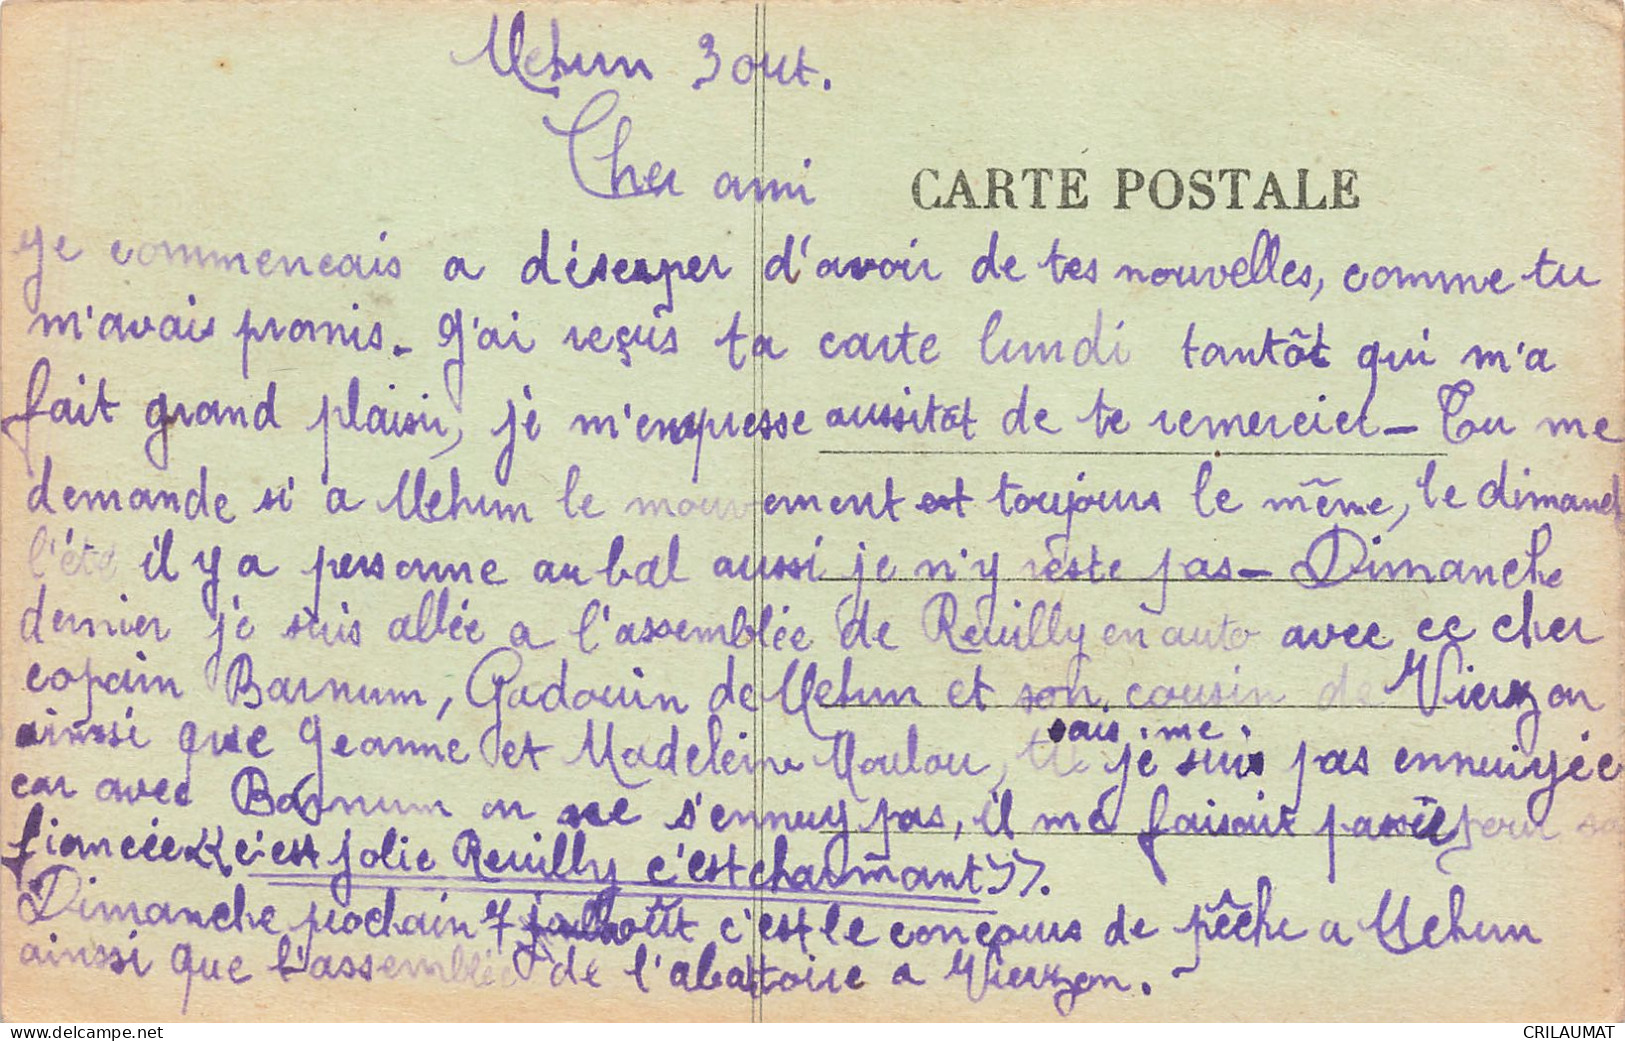 Mehun 3 out.
Cher ami
CARTE POSTALE
je commencais a désesper d'avoir de tes nouvelles, comme tu
m'avais promis. J'ai reçus ta carte lundi tantôt qui m'a
fait grand plaisir, je m'enpresse aussitôt de te remercier - Tu me
demande si a Mehun le mouvement est toujours le même, le dimanch
l'été il y a personne au bal aussi je n'y reste pas - Dimanche
dernier je suis allée a l'assemblée de Reuilly en auto avec ce cher
copain Barnum, Gadouin de Mehun et son cousin de Vierzon
ainssi que Jeanne et Madeleine Moulou, tu sais me je suis pas ennuiyée
car avec Barnum on ne s'ennuy pas, il me faisait passé pour sa
fiancée « c'est jolie Reuilly c'est charmant ».
Dimanche prochain 7 août c'est le concours de pêche a Mehun
ainssi que l'assemblée de l'abattoire a Vierzon.
https://www.delcampe.net
CRILAUMAT